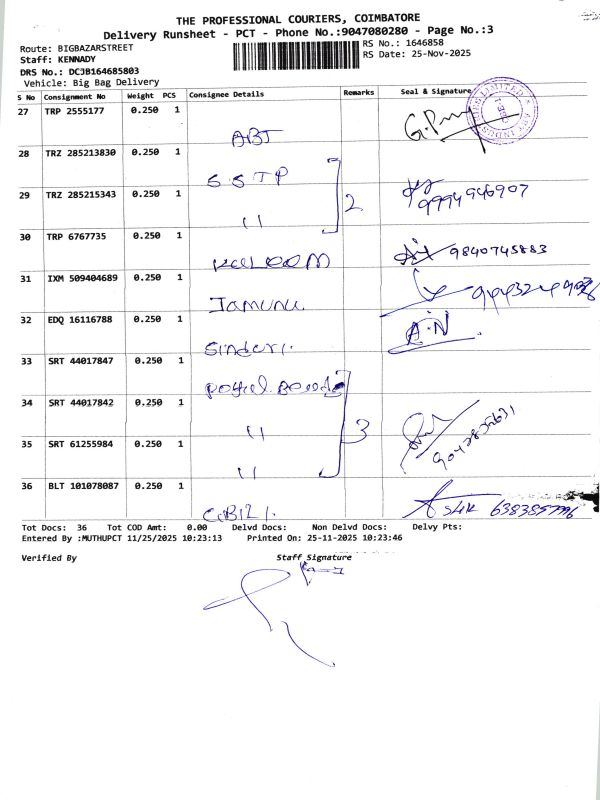 THE PROFESSIONAL COURIERS, COIMBATORE
Delivery Runsheet - PCT - Phone No.:9047080280 - Page No.:3
Route: BIGBAZARSTREET
RS No.: 1646858
Staff: KENNADY
RS Date: 25-Nov-2025
DRS No.: DCJB164685803
Vehicle: Big Bag Delivery
S No Consignment No Weight PCS Consignee Details Remarks Seal & Signature
27 TRP 2555177 0.250 1
ABT
28 TRZ 285213830 0.250 1
SSTP
29 TRZ 285215343 0.250 1
2
9994946907
11
30 TRP 6767735 0.250 1
9840745883
31 IXM 509404689 0.250 1
Jamunu.
32 EDQ 16116788 0.250 1
A.N
33 SRT 44017847 0.250 1
34 SRT 44017842 0.250 1
11
3
35 SRT 61255984 0.250 1
11
36 BLT 101078087 0.250 1
Tot Docs: 36 Tot COD Amt: 0.00 Delvd Docs: Non Delvd Docs: Delvy Pts:
Entered By :MUTHUPCT 11/25/2025 10:23:13 Printed On: 25-11-2025 10:23:46
Verified By Staff Signature